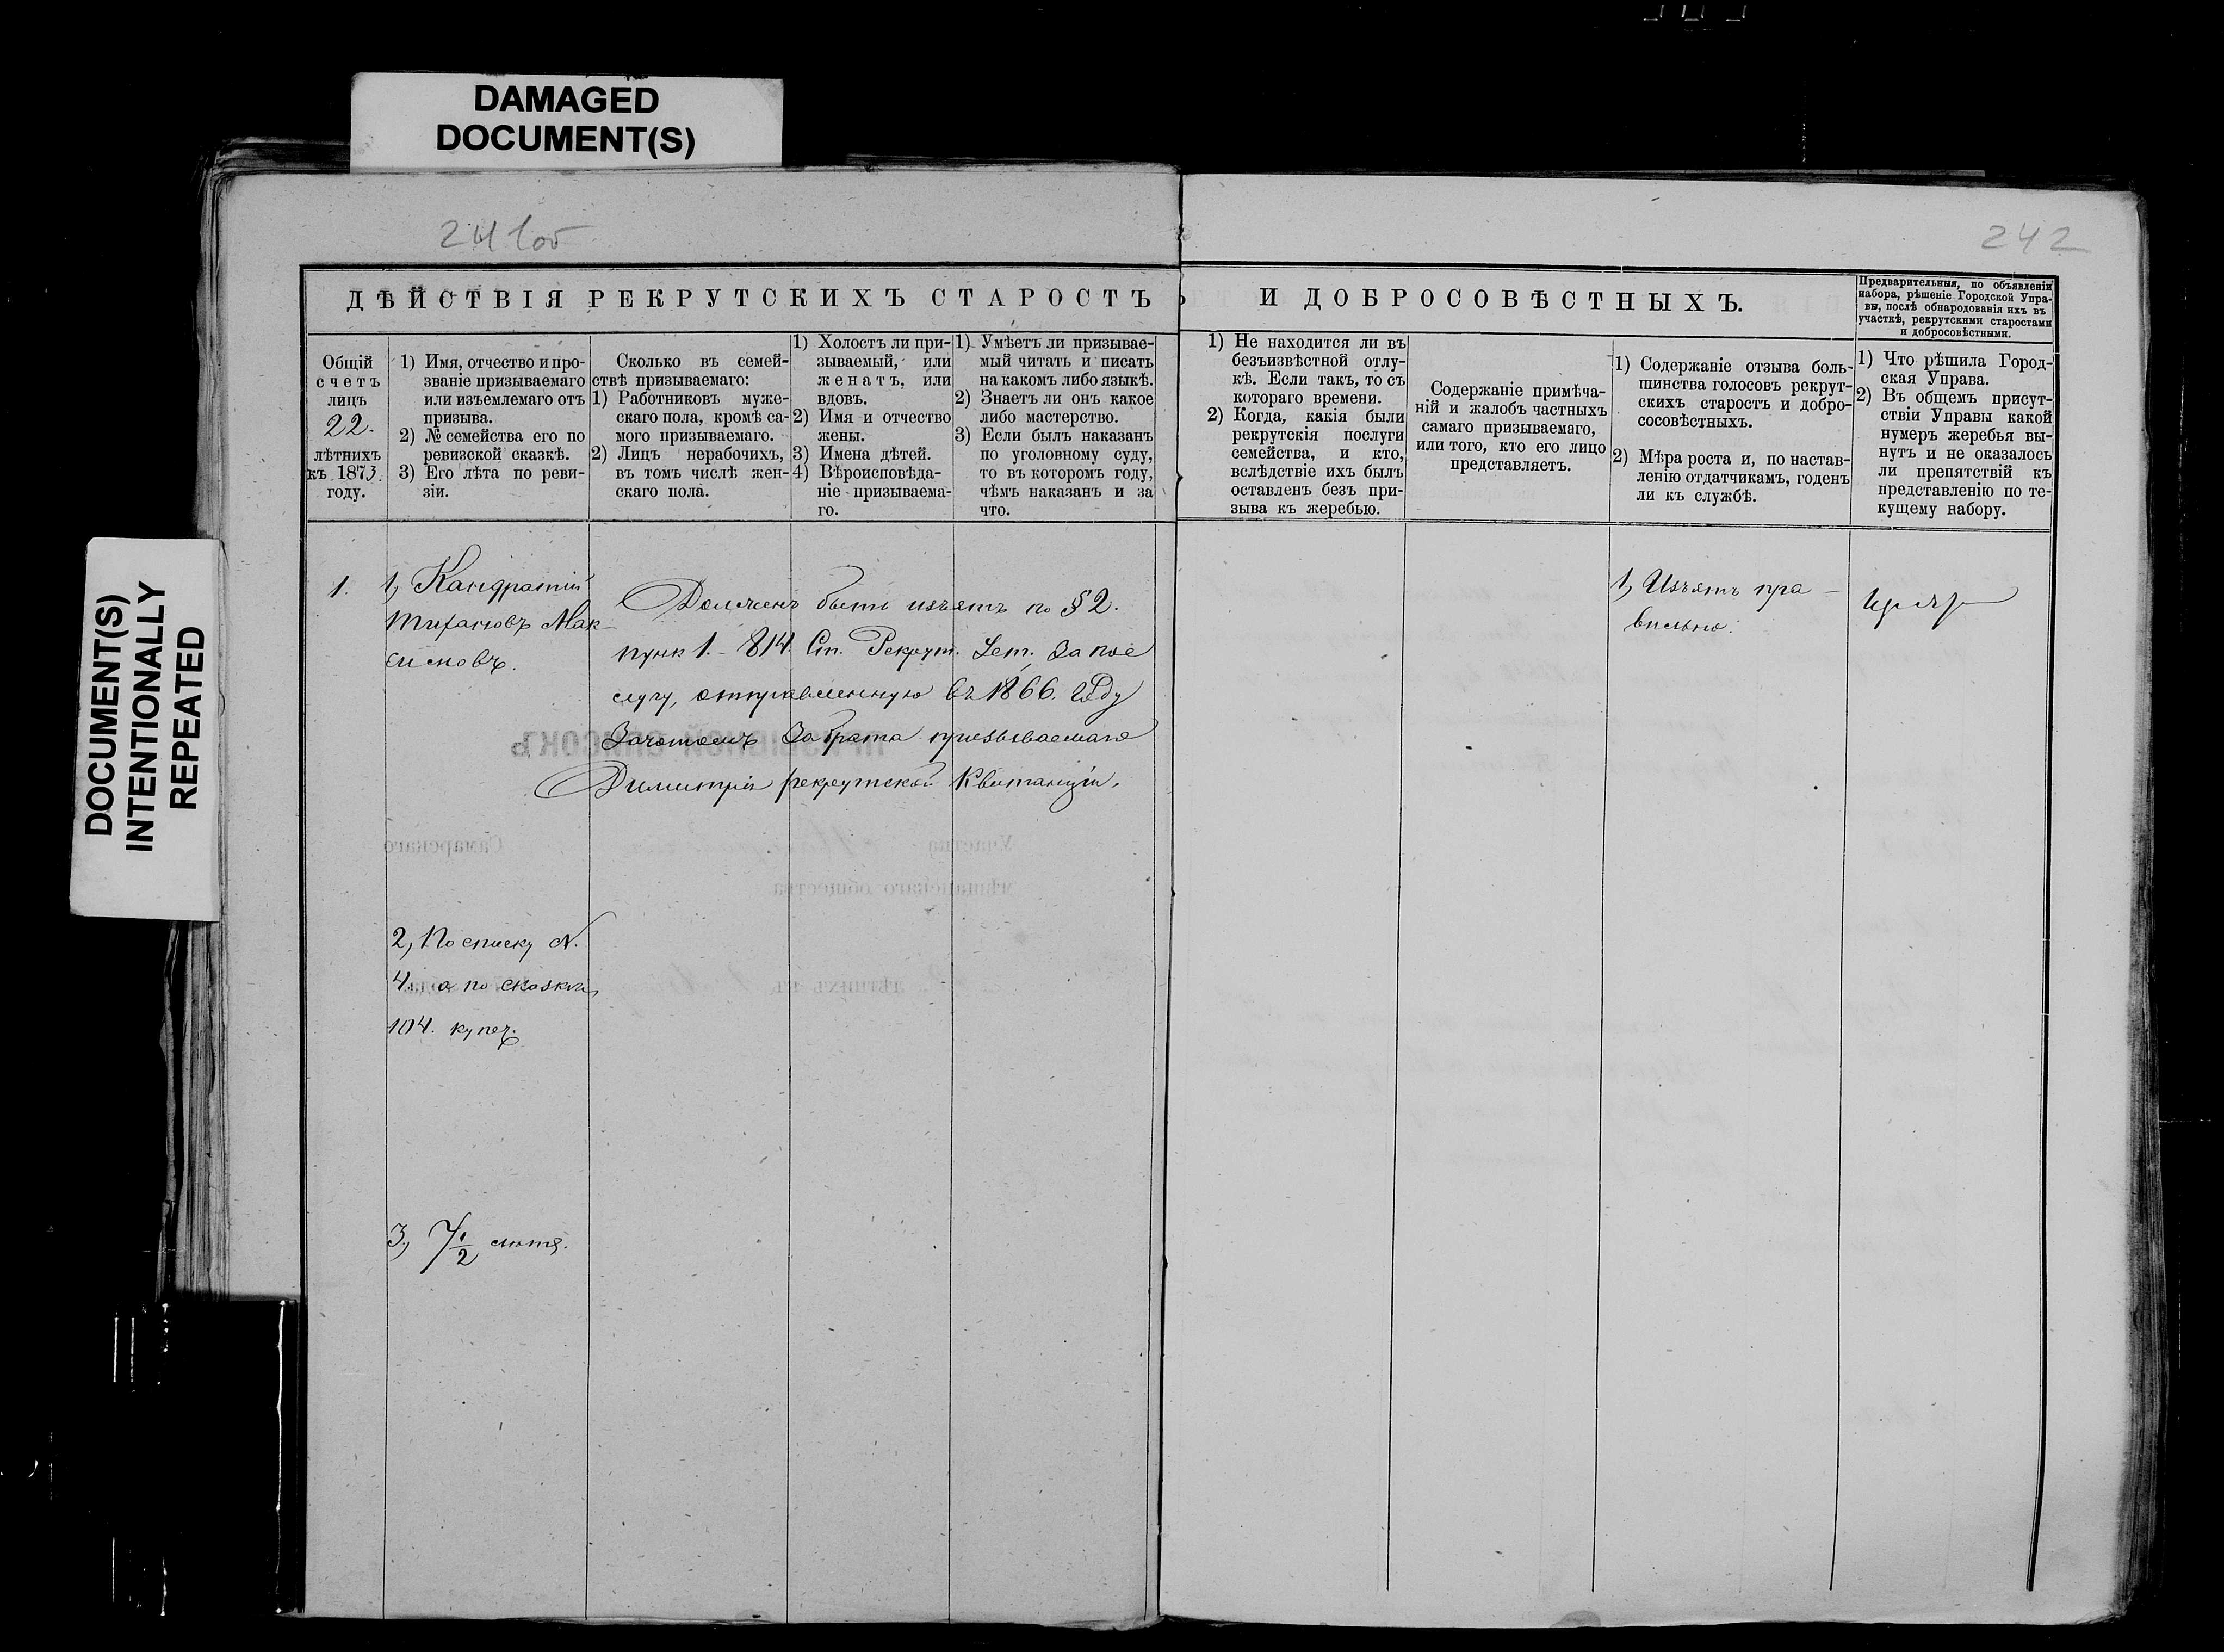 DAMAGED
DOCUMENT(S)
DOCUMENT(S)
INTENTIONALLY
REPEATED
241об
242
ДѢЙСТВІЯ РЕКРУТСКИХЪ СТАРОСТЪ
И ДОБРОСОВѢСТНЫХЪ.
Общій
счетъ
лицъ
22.
лѣтнихъ
къ 1873.
году.
1) Имя, отчество и про-
званіе призываемаго
или изъемлемаго отъ
призыва.
2) № семейства его по
ревизской сказкѣ.
3) Его лѣта по реви-
зіи.
Сколько въ семей-
ствѣ призываемаго:
1) Работниковъ муже-
скаго пола, кромѣ са-
мого призываемаго.
2) Лицъ нерабочихъ,
въ томъ числѣ жен-
скаго пола.
1) Холостъ ли при-
зываемый, или
женатъ, или
вдовъ.
2) Имя и отчество
жены.
3) Имена дѣтей.
4) Вѣроисповѣда-
ніе призываема-
го.
1) Умѣетъ ли призывае-
мый читать и писать
на какомъ либо языкѣ.
2) Знаетъ ли онъ какое
либо мастерство.
3) Если былъ наказанъ
по уголовному суду,
то въ которомъ году,
чѣмъ наказанъ и за
что.
1) Не находится ли въ
безъизвѣстной отлу-
кѣ. Если такъ, то съ
котораго времени.
2) Когда, какія были
рекрутскія послуги
семейства, и кто,
вслѣдствіе ихъ былъ
оставленъ безъ при-
зыва къ жеребью.
Содержаніе примѣча-
ній и жалобъ частныхъ
самаго призываемаго,
или того, кто его лицо
представляетъ.
1) Содержаніе отзыва боль-
шинства голосовъ рекрут-
скихъ старостъ и добро-
сосовѣстныхъ.
2) Мѣра роста и, по настав-
ленію отдатчикамъ, годенъ
ли къ службѣ.
Предварительныя, по объявленіи
набора, рѣшеніе Городской Упра-
вы, послѣ обнародованія ихъ въ
участкѣ, рекрутскими старостами
и добросовѣстными.
1) Что рѣшила Город-
ская Управа.
2) Въ общемъ присут-
ствіи Управы какой
нумеръ жеребья вы-
нутъ и не оказалось
ли препятствій къ
представленію по те-
кущему набору.
1.
1, Кандратій
Тихановъ Мак-
симовъ.
Долженъ быть изъятъ по § 2.
пунк 1. - 814. Ст. Рекрут. Уст. За пос
лугу, отправленную въ 1866. Году
Зачотомъ За брата призываемаго
Димитрія рекрутской Квитанціи.
1, Изъятъ пра-
вильно.
2, По списку N.
4. а по сказки
104. купеч.
3, 7 1/2 лѣтъ.